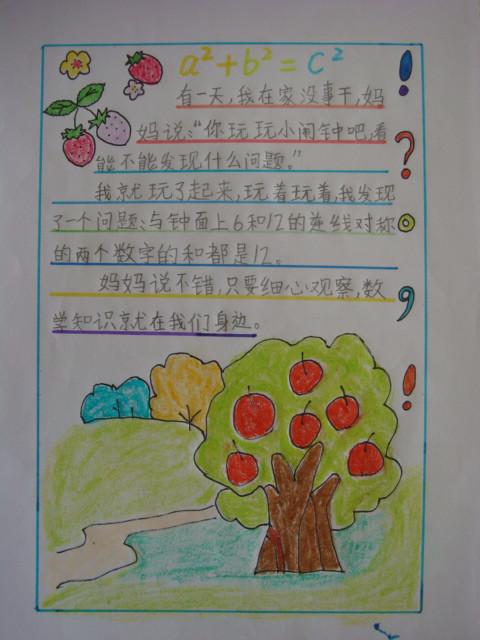 a²+b²=c²
有一天,我在家没事干,妈
妈说:“你玩玩小闹钟吧,看
能不能发现什么问题。”
我就玩了起来,玩着玩着,我发现
了一个问题:与钟面上6和12的连线对称
的两个数字的和都是12。
妈妈说不错,只要细心观察,数
学知识就在我们身边。